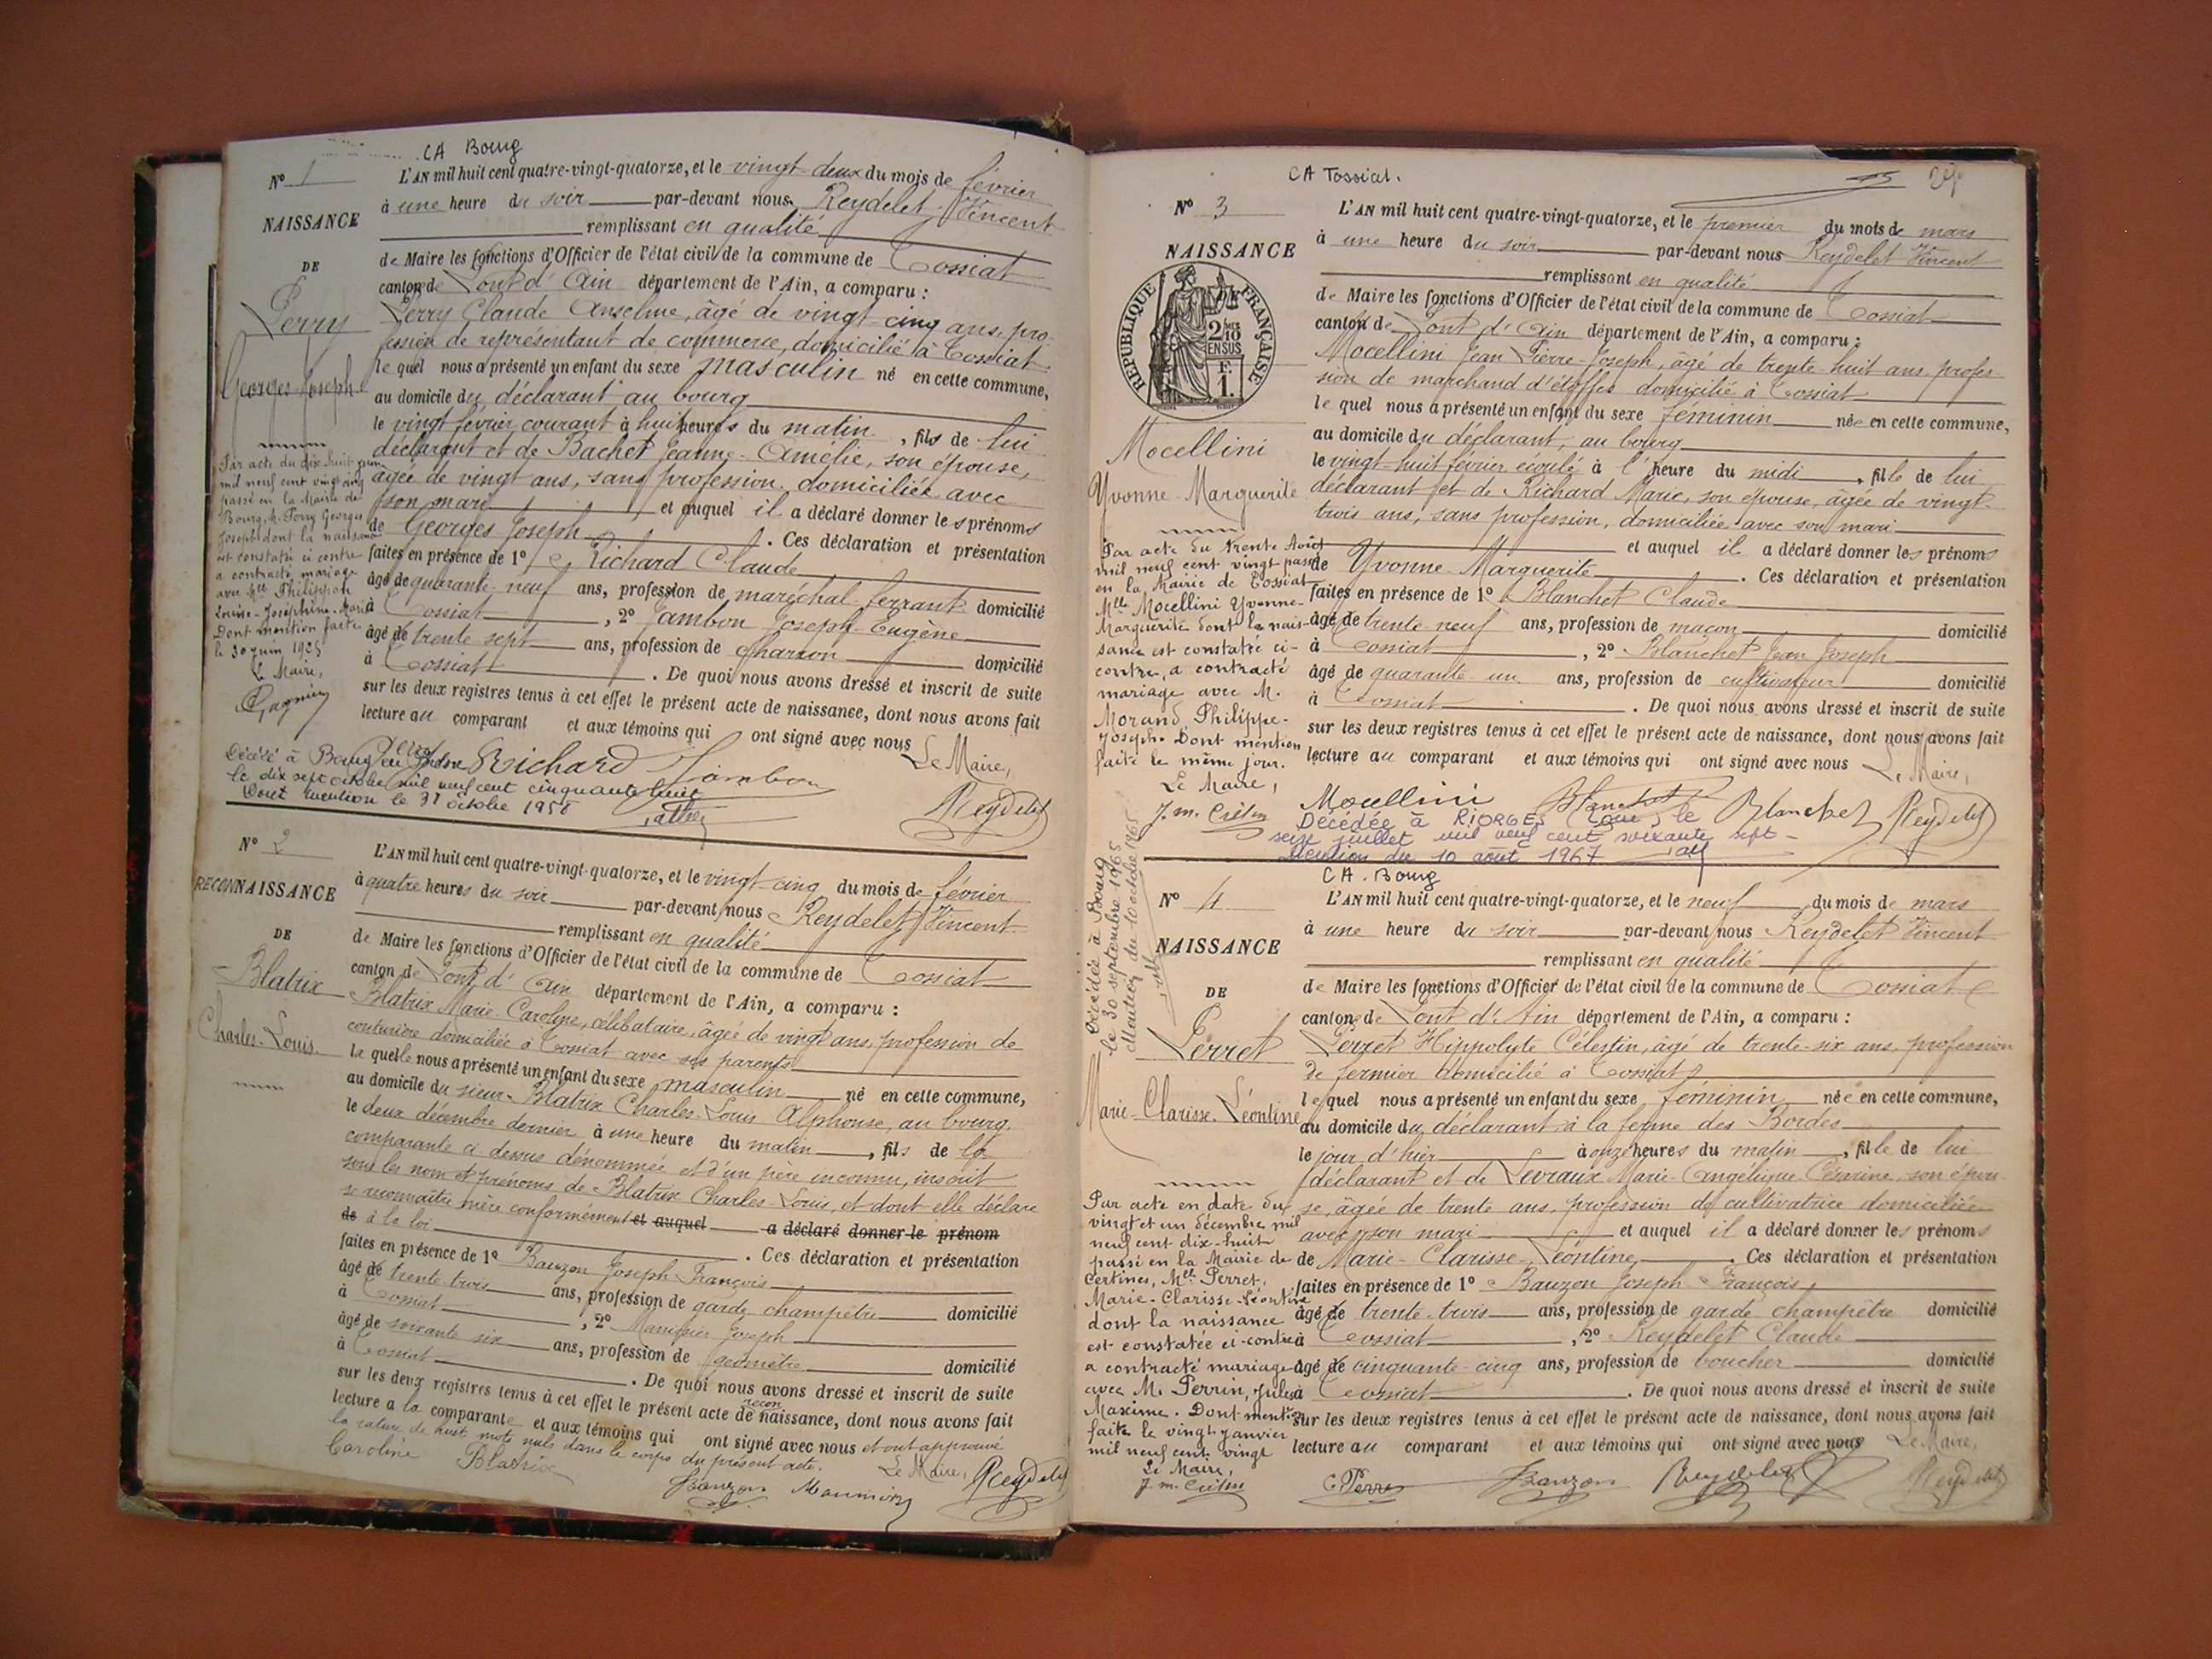 CA Bourg
N° 1
NAISSANCE
DE
Perry
Georges-Joseph
Par acte du dix-huit juin
mil neuf cent vingt cinq
passé en la Mairie de
Bourg, M. Perry Georges
Joseph dont la naissance
est constatée ci contre
a contracté mariage
avec Mlle Philippon
Louise-Joséphine-Marie
Dont mention faite
le 30 juin 1925
Le Maire,
L'AN mil huit cent quatre-vingt-quatorze, et le vingt-deux du mois de février
à une heure du soir par-devant nous Reydelet Vincent
remplissant en qualité
de Maire les fonctions d'Officier de l'état civil de la commune de Tossiat
canton de Pont d'Ain département de l'Ain, a comparu :
Perry Claude Anselme, âgé de vingt-cinq ans, pro-
fession de représentant de commerce, domicilié à Tossiat
lequel nous a présenté un enfant du sexe masculin né en cette commune,
au domicile du déclarant au bourg
le vingt février courant à huit heures du matin, fils de lui
déclarant et de Bachet Jeanne-Amélie, son épouse,
âgée de vingt ans, sans profession domiciliée avec
son mari et auquel il a déclaré donner les prénoms
de Georges Joseph. Ces déclaration et présentation
faites en présence de 1° Richard Claude
âgé de quarante-neuf ans, profession de maréchal-ferrant domicilié
à Tossiat, 2° Jambon Joseph-Eugène
âgé de trente sept ans, profession de charron domicilié
à Tossiat. De quoi nous avons dressé et inscrit de suite
sur les deux registres tenus à cet effet le présent acte de naissance, dont nous avons fait
lecture au comparant et aux témoins qui ont signé avec nous
Le Maire,
Richard Jambon Reydelet
Décédé à Bourg en Bresse
le dix sept octobre mil neuf cent cinquante huit
Dont mention le 31 octobre 1958
N° 2
RECONNAISSANCE
DE
Blatrix
Charles-Louis
L'AN mil huit cent quatre-vingt-quatorze, et le vingt-cinq du mois de février
à quatre heures du soir par-devant nous Reydelet Vincent
remplissant en qualité
de Maire les fonctions d'Officier de l'état civil de la commune de Tossiat
canton de Pont d'Ain département de l'Ain, a comparu :
Blatrix Marie-Caroline, célibataire, âgée de vingt ans, profession de
couturière domiciliée à Tossiat avec ses parents
laquelle nous a présenté un enfant du sexe masculin né en cette commune,
au domicile du sieur Blatrix Charles-Louis Alphonse, au bourg,
le deux décembre dernier à une heure du matin, fils de la
comparante ci-dessus dénommée et d'un père inconnu, inscrit
sous les nom et prénoms de Blatrix Charles-Louis, et dont elle déclare
se reconnaître mère conformément et auquel a déclaré donner le prénom
de à la loi. Ces déclaration et présentation
faites en présence de 1° Bauzon Joseph François
âgé de trente-trois ans, profession de garde champêtre domicilié
à Tossiat, 2° Mannier Joseph
âgé de soixante six ans, profession de géomètre domicilié
à Tossiat. De quoi nous avons dressé et inscrit de suite
sur les deux registres tenus à cet effet le présent acte de reconnaissance, dont nous avons fait
lecture a la comparante et aux témoins qui ont signé avec nous et ont approuvé
la rature de huit mots nuls dans le corps du présent acte.
Le Maire, Reydelet
Caroline Blatrix
Bauzon
CA Tossiat.
N° 3
NAISSANCE
DE
RÉPUBLIQUE FRANÇAISE
2/10 EN SUS
F. 1.
Mocellini
Yvonne-Marguerite
Par acte du trente Août
mil neuf cent vingt passé
en la Mairie de Tossiat
Mlle Mocellini Yvonne-
Marguerite dont la nais-
sance est constatée ci-
contre, a contracté
mariage avec M.
Morand Philippe-
Joseph. Dont mention
faite le même jour.
Le Maire,
J. m. Crétin
L'AN mil huit cent quatre-vingt-quatorze, et le premier du mois de mars
à une heure du soir par-devant nous Reydelet Vincent
remplissant en qualité
de Maire les fonctions d'Officier de l'état civil de la commune de Tossiat
canton de Pont d'Ain département de l'Ain, a comparu :
Mocellini Jean Pierre-Joseph, âgé de trente-huit ans, profes-
sion de marchand d'étoffes domicilié à Tossiat
lequel nous a présenté un enfant du sexe féminin née en cette commune,
au domicile du déclarant, au bourg
le vingt-huit février écoulé à l'heure du midi, fille de lui
déclarant et de Richard Marie, son épouse, âgée de vingt-
trois ans, sans profession, domiciliée avec son mari
et auquel il a déclaré donner les prénoms
de Yvonne-Marguerite. Ces déclaration et présentation
faites en présence de 1° Blanchet Claude
âgé de trente-neuf ans, profession de maçon domicilié
à Tossiat, 2° Blanchet Jean Joseph
âgé de quarante-un ans, profession de cultivateur domicilié
à Tossiat. De quoi nous avons dressé et inscrit de suite
sur les deux registres tenus à cet effet le présent acte de naissance, dont nous avons fait
lecture au comparant et aux témoins qui ont signé avec nous Le Maire,
Mocellini Blanchet Blanchet Reydelet
Décédée à RIORGES (Loire), le
seize juillet mil neuf cent soixante sept
Mention du 10 août 1967
CA. Bourg
N° 4
NAISSANCE
DE
Perret
Marie-Clarisse-Léontine
Décédée à Bourg
le 30 septembre 1965
Mention du 10 octobre 1965
Par acte en date du
vingt et un décembre mil
neuf cent dix-huit
passé en la Mairie de
Certines, Mlle Perret,
Marie-Clarisse-Léontine
dont la naissance
est constatée ci-contre
a contracté mariage
avec M. Perrin, Jules
Maxime. Dont mention
faite le vingt janvier
mil neuf cent vingt
Le Maire,
J. m. Crétin
L'AN mil huit cent quatre-vingt-quatorze, et le neuf du mois de mars
à une heure du soir par-devant nous Reydelet Vincent
remplissant en qualité
de Maire les fonctions d'Officier de l'état civil de la commune de Tossiat
canton de Pont d'Ain département de l'Ain, a comparu :
Perret Hippolyte Célestin, âgé de trente-six ans, profession
de fermier domicilié à Tossiat
lequel nous a présenté un enfant du sexe féminin née en cette commune,
au domicile du déclarant, à la ferme des Bordes
le jour d'hier à onze heures du matin, fille de lui
déclarant et de Levraux Marie-Angélique Césarine, son épou-
se, âgée de trente ans, profession de cultivatrice domiciliée
avec son mari et auquel il a déclaré donner les prénoms
de Marie-Clarisse-Léontine. Ces déclaration et présentation
faites en présence de 1° Bauzon Joseph François,
âgé de trente-trois ans, profession de garde champêtre domicilié
à Tossiat, 2° Reydelet Claude
âgé de cinquante-cinq ans, profession de boucher domicilié
à Tossiat. De quoi nous avons dressé et inscrit de suite
sur les deux registres tenus à cet effet le présent acte de naissance, dont nous avons fait
lecture au comparant et aux témoins qui ont signé avec nous Le Maire,
Perret Bauzon Reydelet Reydelet